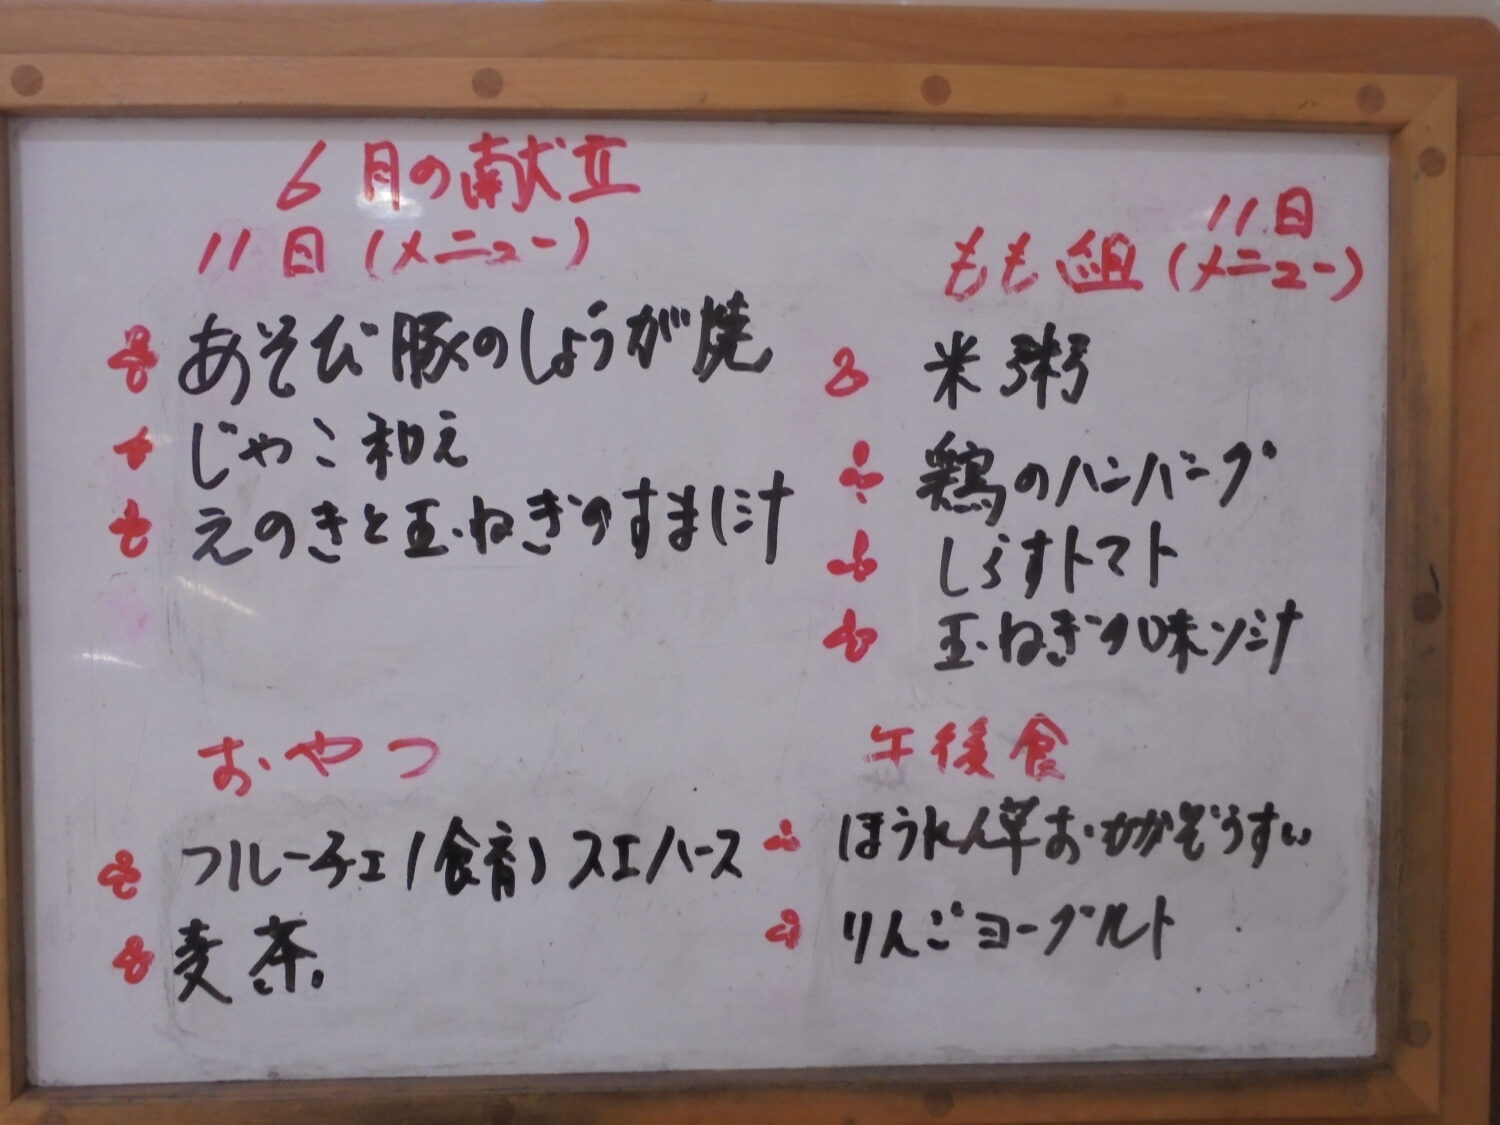 6月の献立
11日(メニュー)
あそび豚のしょうが焼
じゃこ和え
えのきと玉ねぎのすまし汁
おやつ
フルーチェ(食育)スエハース
麦茶
11日
もも組(メニュー)
米粥
鶏のハンバーグ
しらすトマト
玉ねぎの味ソ汁
午後食
ほうれん草おかかぞうすい
りんごヨーグルト